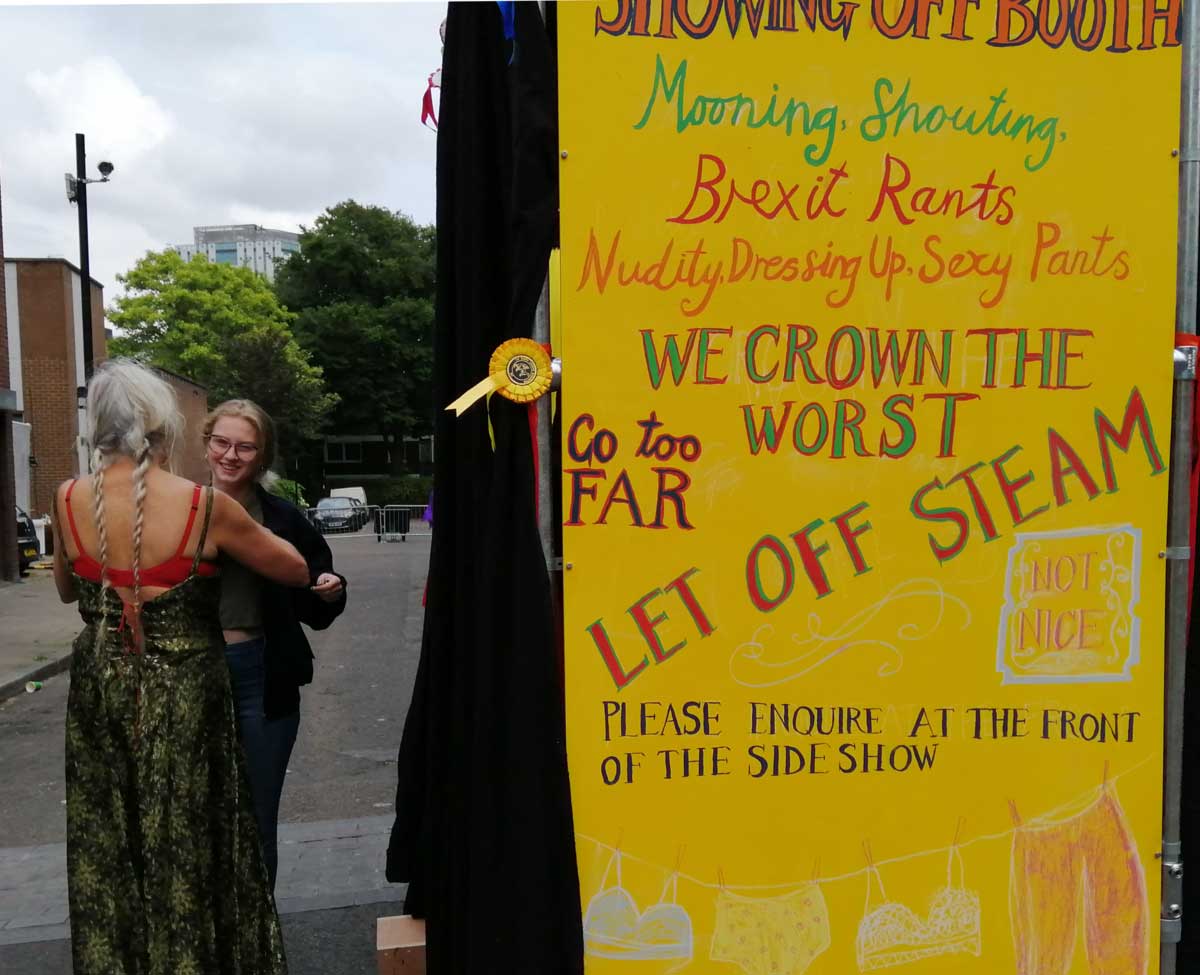 SHOWING OFF BOOTH
Mooning, Shouting,
Brexit Rants
Nudity, Dressing Up, Sexy Pants
WE CROWN THE
WORST
Go too
FAR
LET OFF STEAM
NOT
NICE
PLEASE ENQUIRE AT THE FRONT
OF THE SIDE SHOW